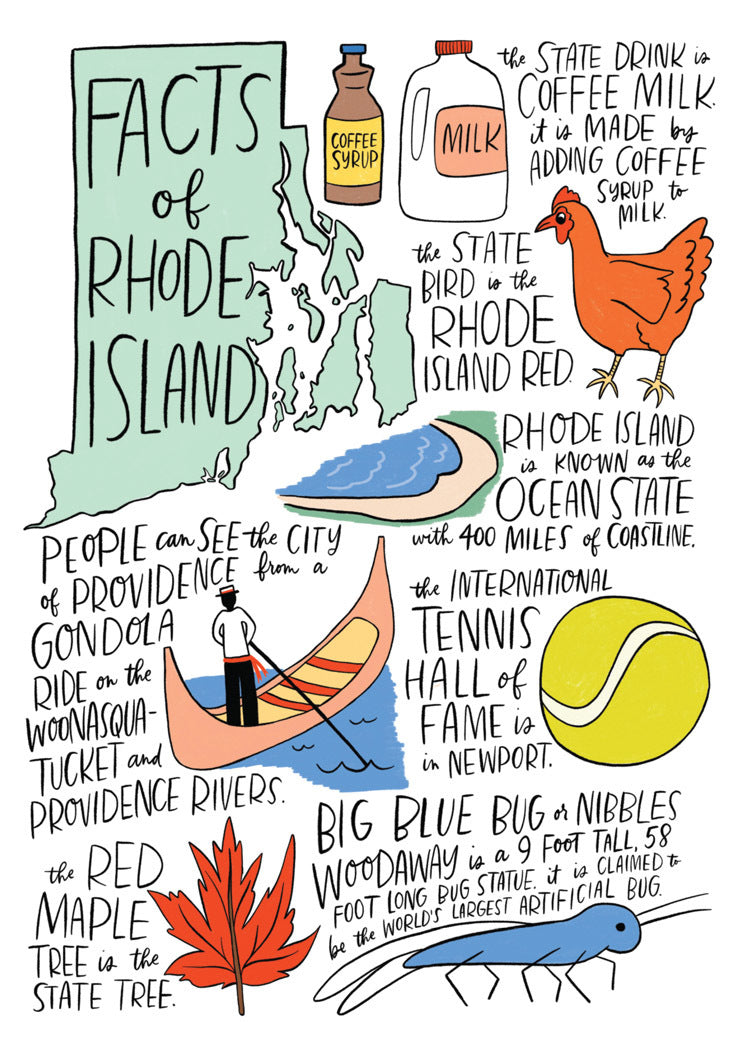 FACTS
of
RHODE
ISLAND
COFFEE
SYRUP
MILK
the STATE DRINK is
COFFEE MILK.
it is MADE by
ADDING COFFEE
SYRUP to
MILK.
the STATE
BIRD is the
RHODE
ISLAND RED.
RHODE ISLAND
is KNOWN as the
OCEAN STATE
with 400 MILES of COASTLINE.
PEOPLE can SEE the CITY
of PROVIDENCE from a
GONDOLA
RIDE on the
WOONASQUA-
TUCKET and
PROVIDENCE RIVERS.
the INTERNATIONAL
TENNIS
HALL of
FAME is
in NEWPORT.
BIG BLUE BUG or NIBBLES
WOODAWAY is a 9 FOOT TALL, 58
FOOT LONG BUG STATUE. it is CLAIMED to
be the WORLD'S LARGEST ARTIFICIAL BUG.
the RED
MAPLE
TREE is the
STATE TREE.